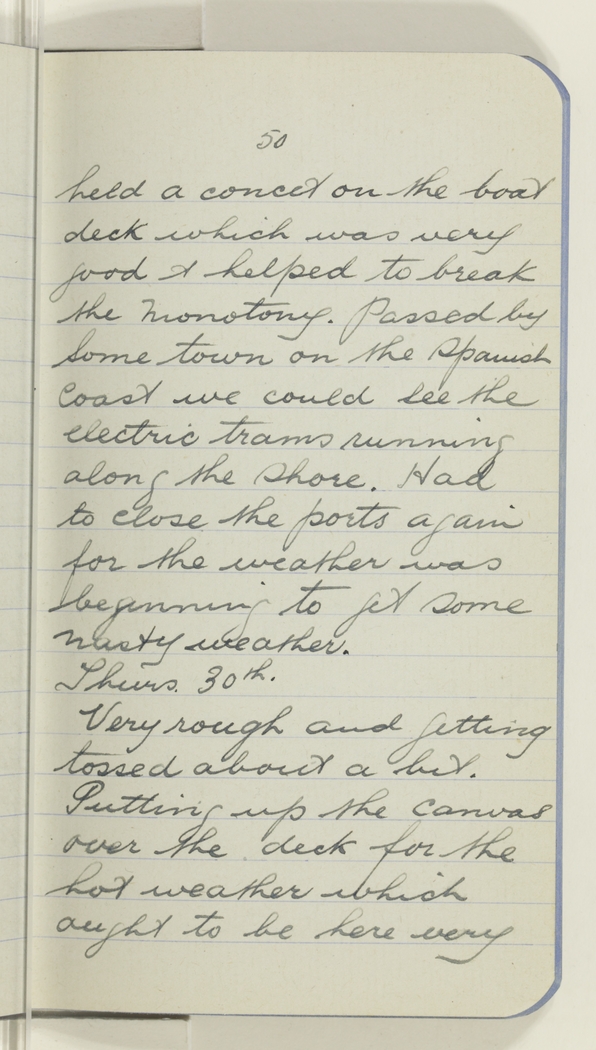 50
held a concet on the boat
deck which was very
good & helped to break
the monotony. Passed by
some town on the Spanish
coast we could see the
electric trams running
along the shore. Had
to close the ports again
for the weather was
beginning to get some
nasty weather.
Thurs. 30th.
Very rough and getting
tossed about a bit.
Putting up the canvas
over the deck for the
hot weather which
ought to be here very